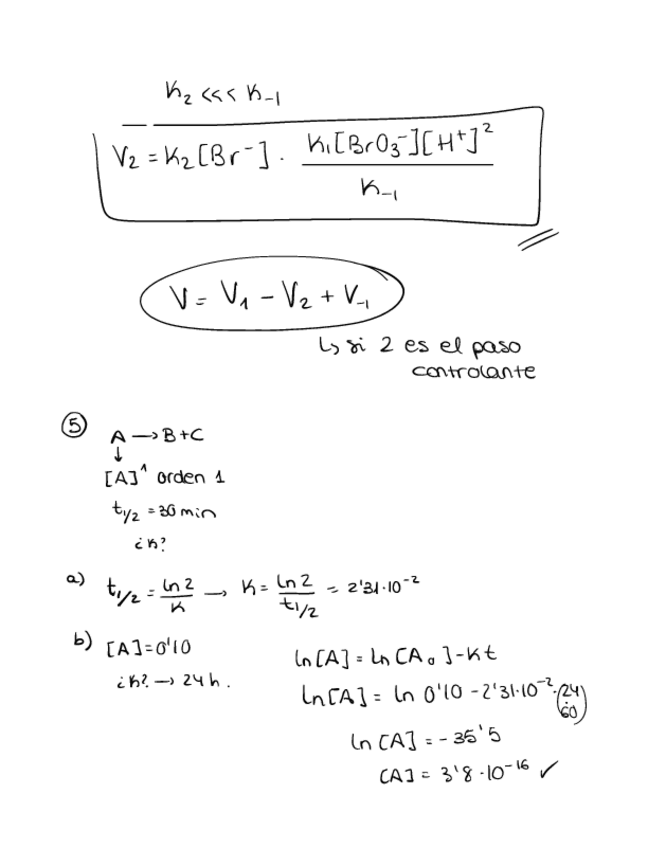 K₂ <<< K₋₁
V₂ = K₂[Br⁻] · K₁[BrO₃⁻][H⁺]² / K₋₁
V = V₁ - V₂ + V₋₁
↳ si 2 es el paso
controlante
⑤ A → B + C
↓
[A]¹ orden 1
t₁/₂ = 30 min
¿K?
a) t₁/₂ = ln 2 / K → K = ln 2 / t₁/₂ = 2'31·10⁻²
b) [A] = 0'10
¿K? → 24 h.
ln [A] = ln [A₀] - Kt
ln [A] = ln 0'10 - 2'31·10⁻²·(24·60)
ln [A] = -35'5
[A] = 3'8·10⁻¹⁶ ✓